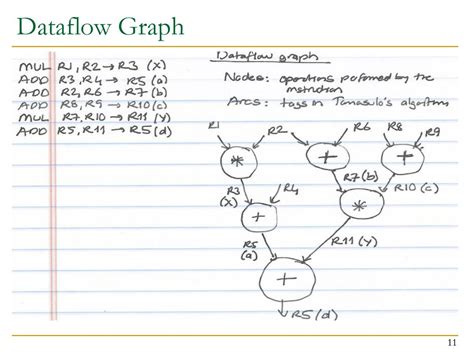 Dataflow Graph
MUL R1, R2 → R3 (X)
ADD R3, R4 → R5 (a)
ADD R2, R6 → R7 (b)
ADD R8, R9 → R10 (c)
MUL R7, R10 → R11 (y)
ADD R5, R11 → R5 (d)
Dataflow graph
Nodes: operations performed by the
instruction
Arcs: tags in Tomasulo's algorithm
R1 R2 R6 R8 R9
* + +
R3 (X) R4 R7 (b) R10 (c)
+ *
R5 (a) R11 (y)
+
R5 (d)
11